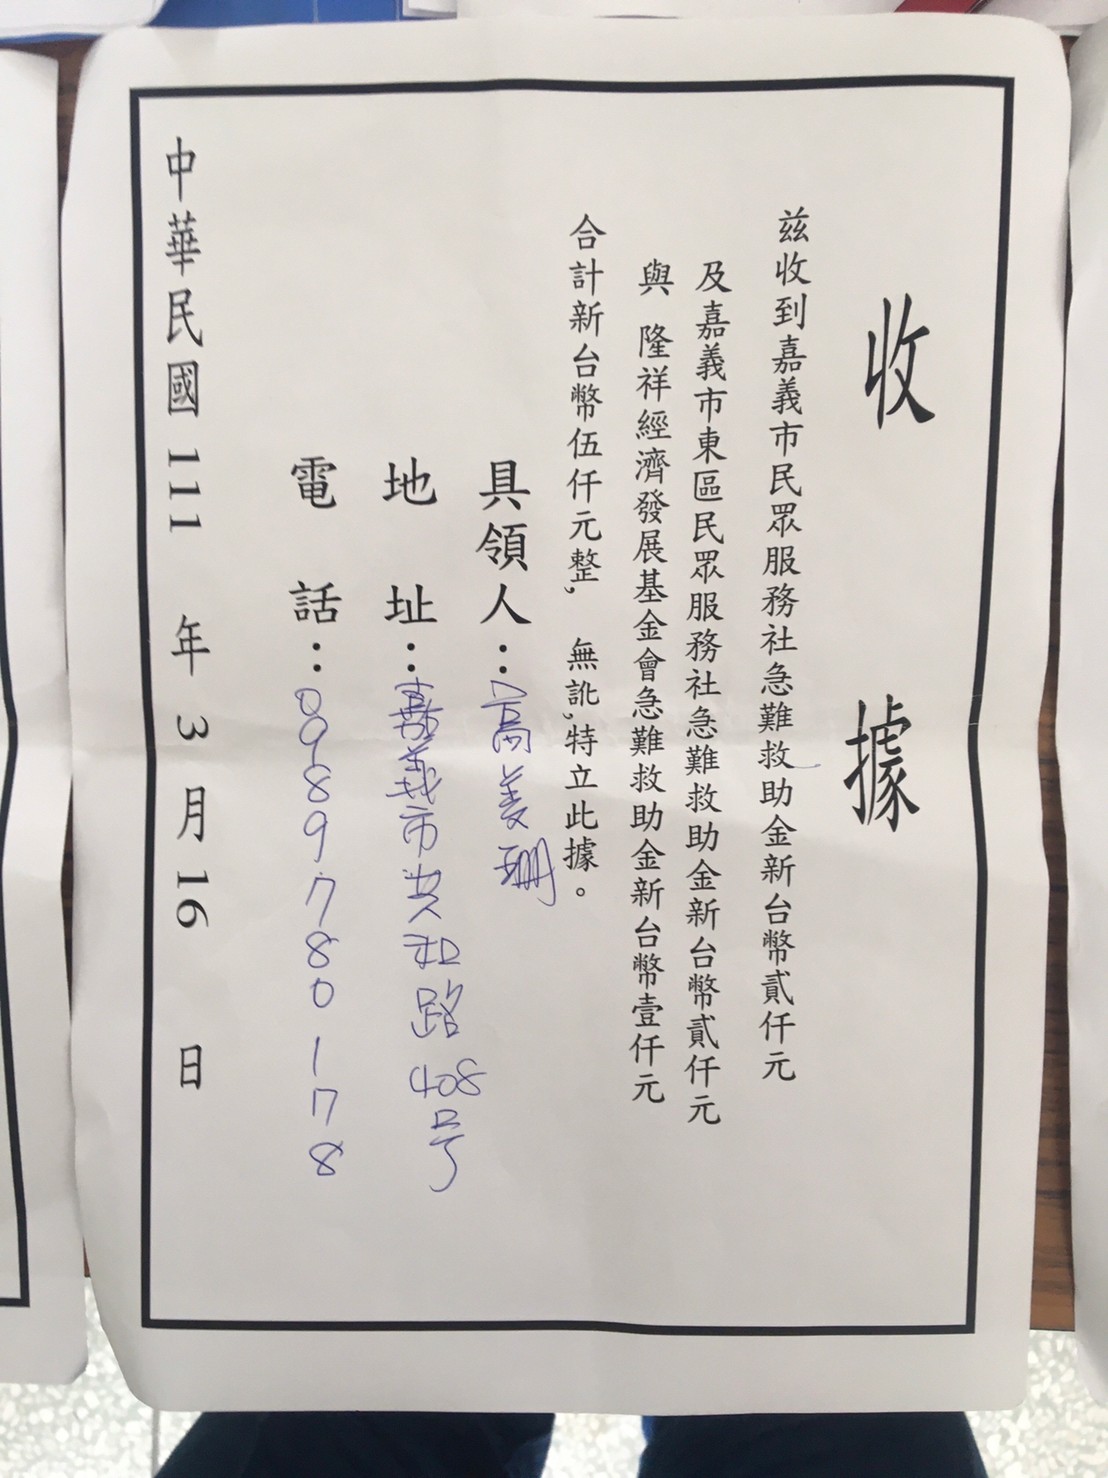 收據
茲收到嘉義市民眾服務社急難救助金新台幣貳仟元
及嘉義市東區民眾服務社急難救助金新台幣貳仟元
與 隆祥經濟發展基金會急難救助金新台幣壹仟元
合計新台幣伍仟元整, 無訛,特立此據。
具領人：高美珊
地 址：嘉義市共和路408号
電 話：0989780178
中華民國 111 年 3 月 16 日